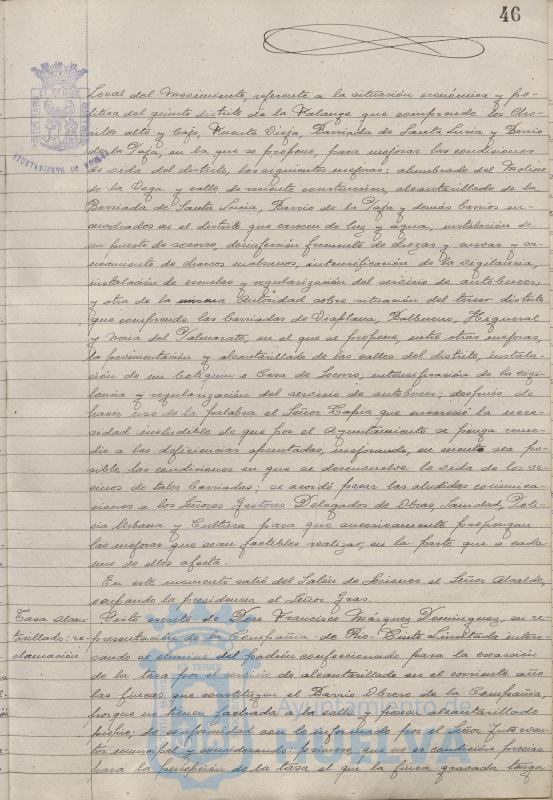 46
Local del Movimiento, referente a la situación económica y po-
lítica del quinto distrito de la Falange que comprende los Cho-
ritos alto y bajo, Fuente Vieja, Barriada de Santa Lucía y Barrio
de la Joya, en la que se propone, para mejorar las condiciones
de vida del distrito, las siguientes mejoras: alumbrado del Molino
de la Vega y calle de reciente construcción, alcantarillado de la
Barriada de Santa Lucía, Barrio de la Joya y demás barrios en-
cuadrados en el distrito que carecen de luz y agua, instalación de
un puesto de socorro, desinfección frecuente de chozas y cuevas y sa-
neamiento de charcos malsanos, intensificación de la vigilancia,
instalación de escuelas y regularización del servicio de autobuses;
y otra de la misma Autoridad sobre situación del tercer distrito
que comprende las barriadas de Viaplana, Balbueno, Higueral
y Noria del Palmarito, en el que se propone, entre otras mejoras,
la pavimentación y alcantarillado de las calles del distrito, instala-
ción de un botiquín o Casa de Socorro, intensificación de la vigi-
lancia y regularización del servicio de autobuses; después de
hacer uso de la palabra el Señor Tapia que encareció la nece-
sidad ineludible de que por el Ayuntamiento se ponga reme-
dio a las deficiencias apuntadas, mejorando, en cuanto sea po-
sible las condiciones en que se desenvuelve la vida de los ve-
cinos de tales barriadas; se acordó pasar las aludidas comunica-
ciones a los Señores Gestores Delegados de Obras, Sanidad, Poli-
cía Urbana y Cultura para que sucesivamente propongan
las mejoras que sean factibles realizar, en la parte que a cada
uno de ellos afecta.
En este momento salió del Salón de Sesiones el Señor Alcalde,
ocupando la presidencia el Señor Gras.
Tasa Alcan-
tarillado: re-
clamación
Visto escrito de Don Francisco Márquez Domínguez, en re-
presentación de la Compañía de Rio-Tinto Limitada intere-
sando se elimine del padrón confeccionado para la exacción
de la tasa por el servicio de alcantarillado en el corriente año
las fincas que constituyen el Barrio Obrero de la Compañía,
porque no tienen fachada a la calle y poseer alcantarillado
propio; de conformidad con lo informado por el Señor Interven-
tor municipal y considerando: primero, que no es condición precisa
para la percepción de la tasa el que la finca gravada tenga
AYUNTAMIENTO DE HUELVA
Ayuntamiento de
HUELVA